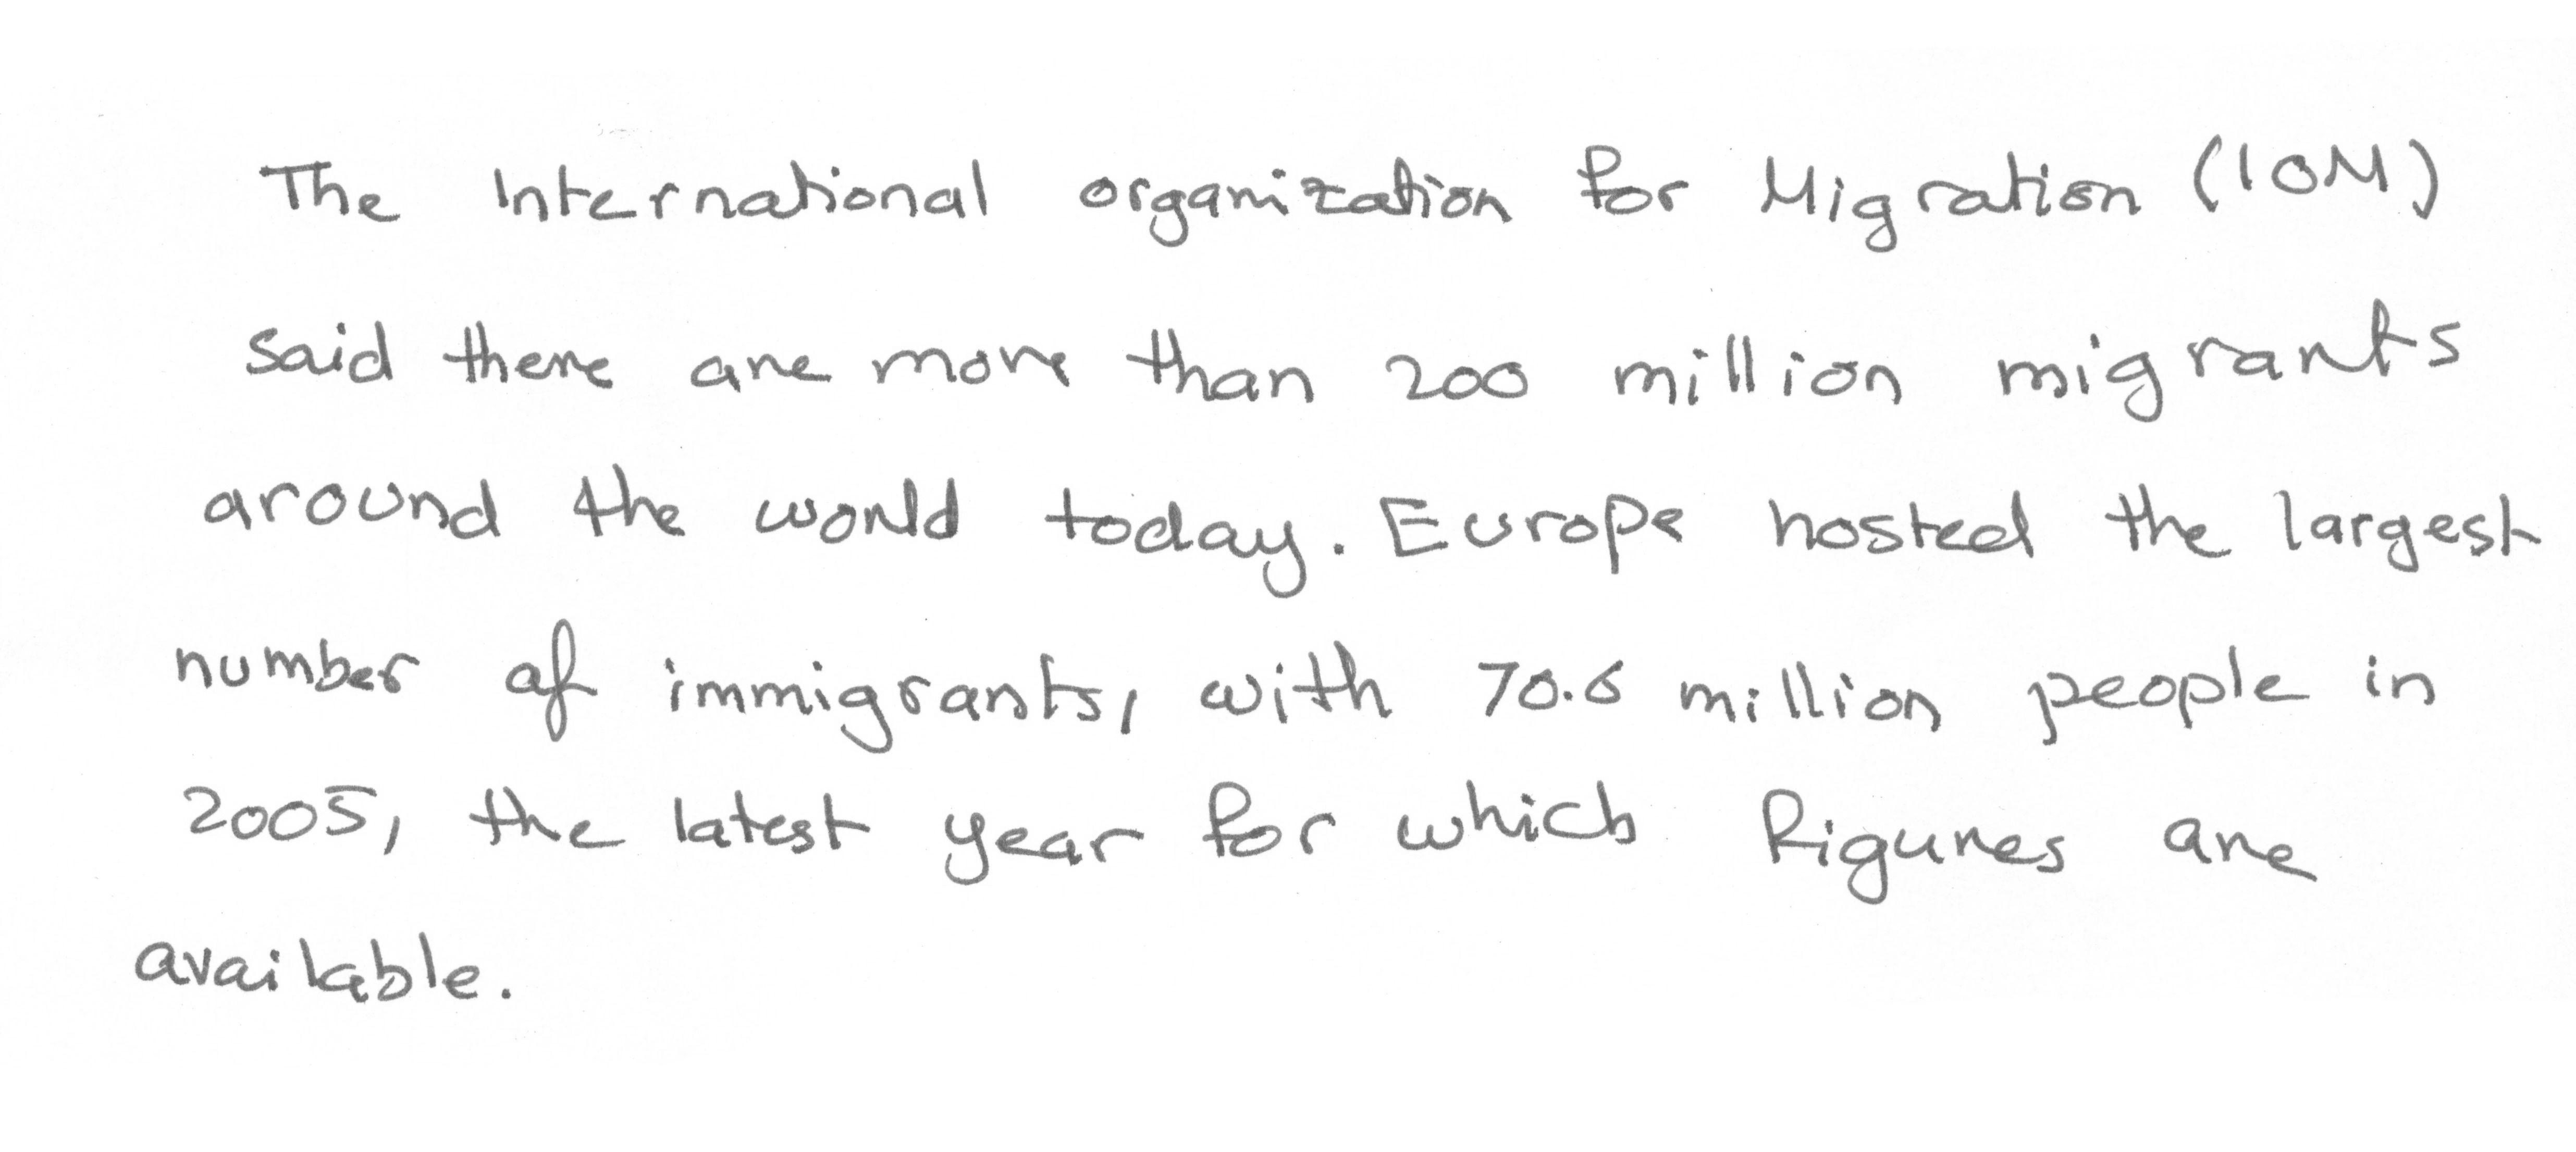 The International organization for Migration (IOM)
said there are more than 200 million migrants
around the world today. Europe hosted the largest
number of immigrants, with 70.6 million people in
2005, the latest year for which figures are
available.